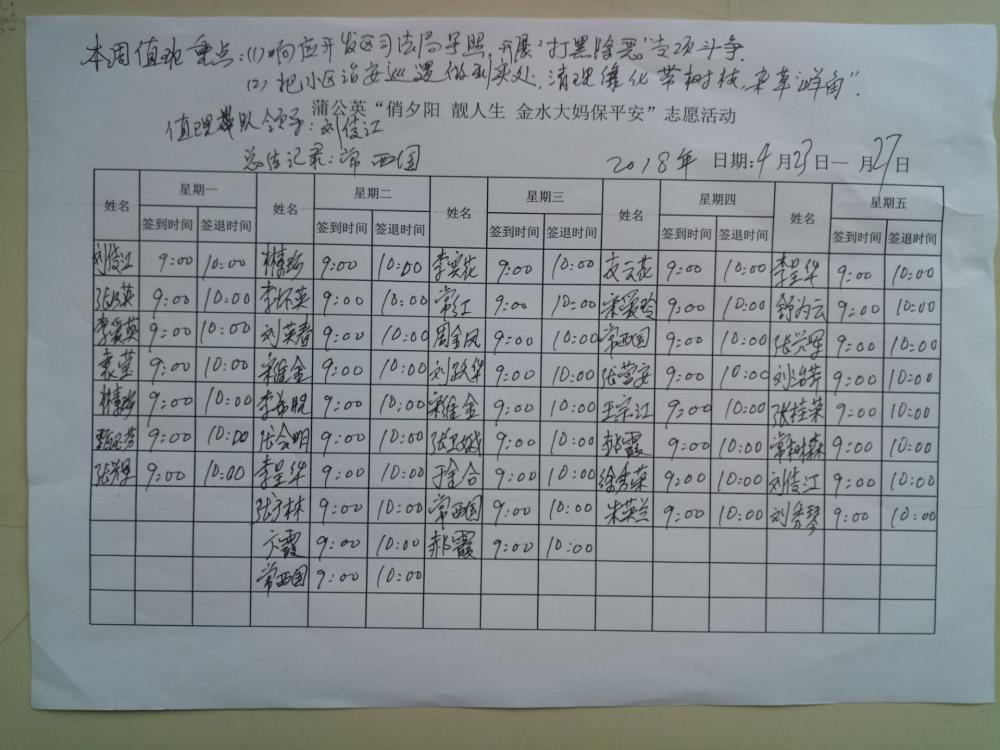 本周值班重点:(1)响应开发区司法局号照,开展“打黑除恶”专项斗争.
(2)把小区治安巡逻做到实处,清理绿化带树枝,杂草
蒲公英“俏夕阳 靓人生 金水大妈保平安”志愿活动
值班带队领导:刘俊江
总结记录:常西国
2018年 日期:4月23日—月27日
姓名 星期一 姓名 星期二 姓名 星期三 姓名 星期四 姓名 星期五
签到时间 签退时间 签到时间 签退时间 签到时间 签退时间 签到时间 签退时间 签到时间 签退时间
刘俊江 9:00 10:00 9:00 10:00 9:00 10:00 9:00 10:00 李呈华 9:00 10:00
9:00 10:00 李怀英 9:00 10:00 常红 9:00 10:00 宋爱玲 9:00 10:00 舒为云 9:00 10:00
李爱英 9:00 10:00 刘英春 9:00 10:00 周金凤 9:00 10:00 常西国 9:00 10:00 9:00 10:00
袁莹 9:00 10:00 宋维金 9:00 10:00 9:00 10:00 9:00 10:00 9:00 10:00
9:00 10:00 9:00 10:00 宋维金 9:00 10:00 王宗江 9:00 10:00 张桂荣 9:00 10:00
9:00 10:00 张会明 9:00 10:00 9:00 10:00 郝霞 9:00 10:00 常树森 9:00 10:00
9:00 10:00 李呈华 9:00 10:00 9:00 10:00 徐秀荣 9:00 10:00 刘俊江 9:00 10:00
9:00 10:00 常西国 9:00 10:00 朱英兰 9:00 10:00 刘秀琴 9:00 10:00
9:00 10:00 郝霞 9:00 10:00
常西国 9:00 10:00